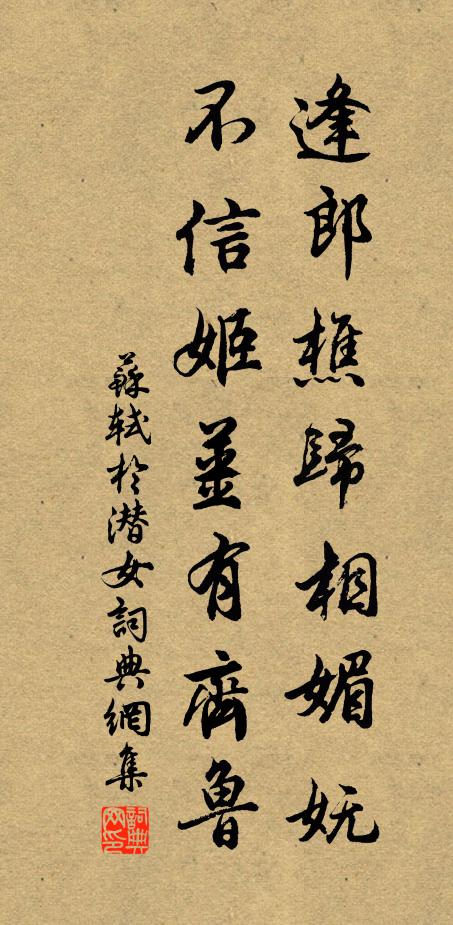 逢郎樵歸相媚妩
不信姬薑有齊魯
蘇軾於潛女詞典網集
詞典網印